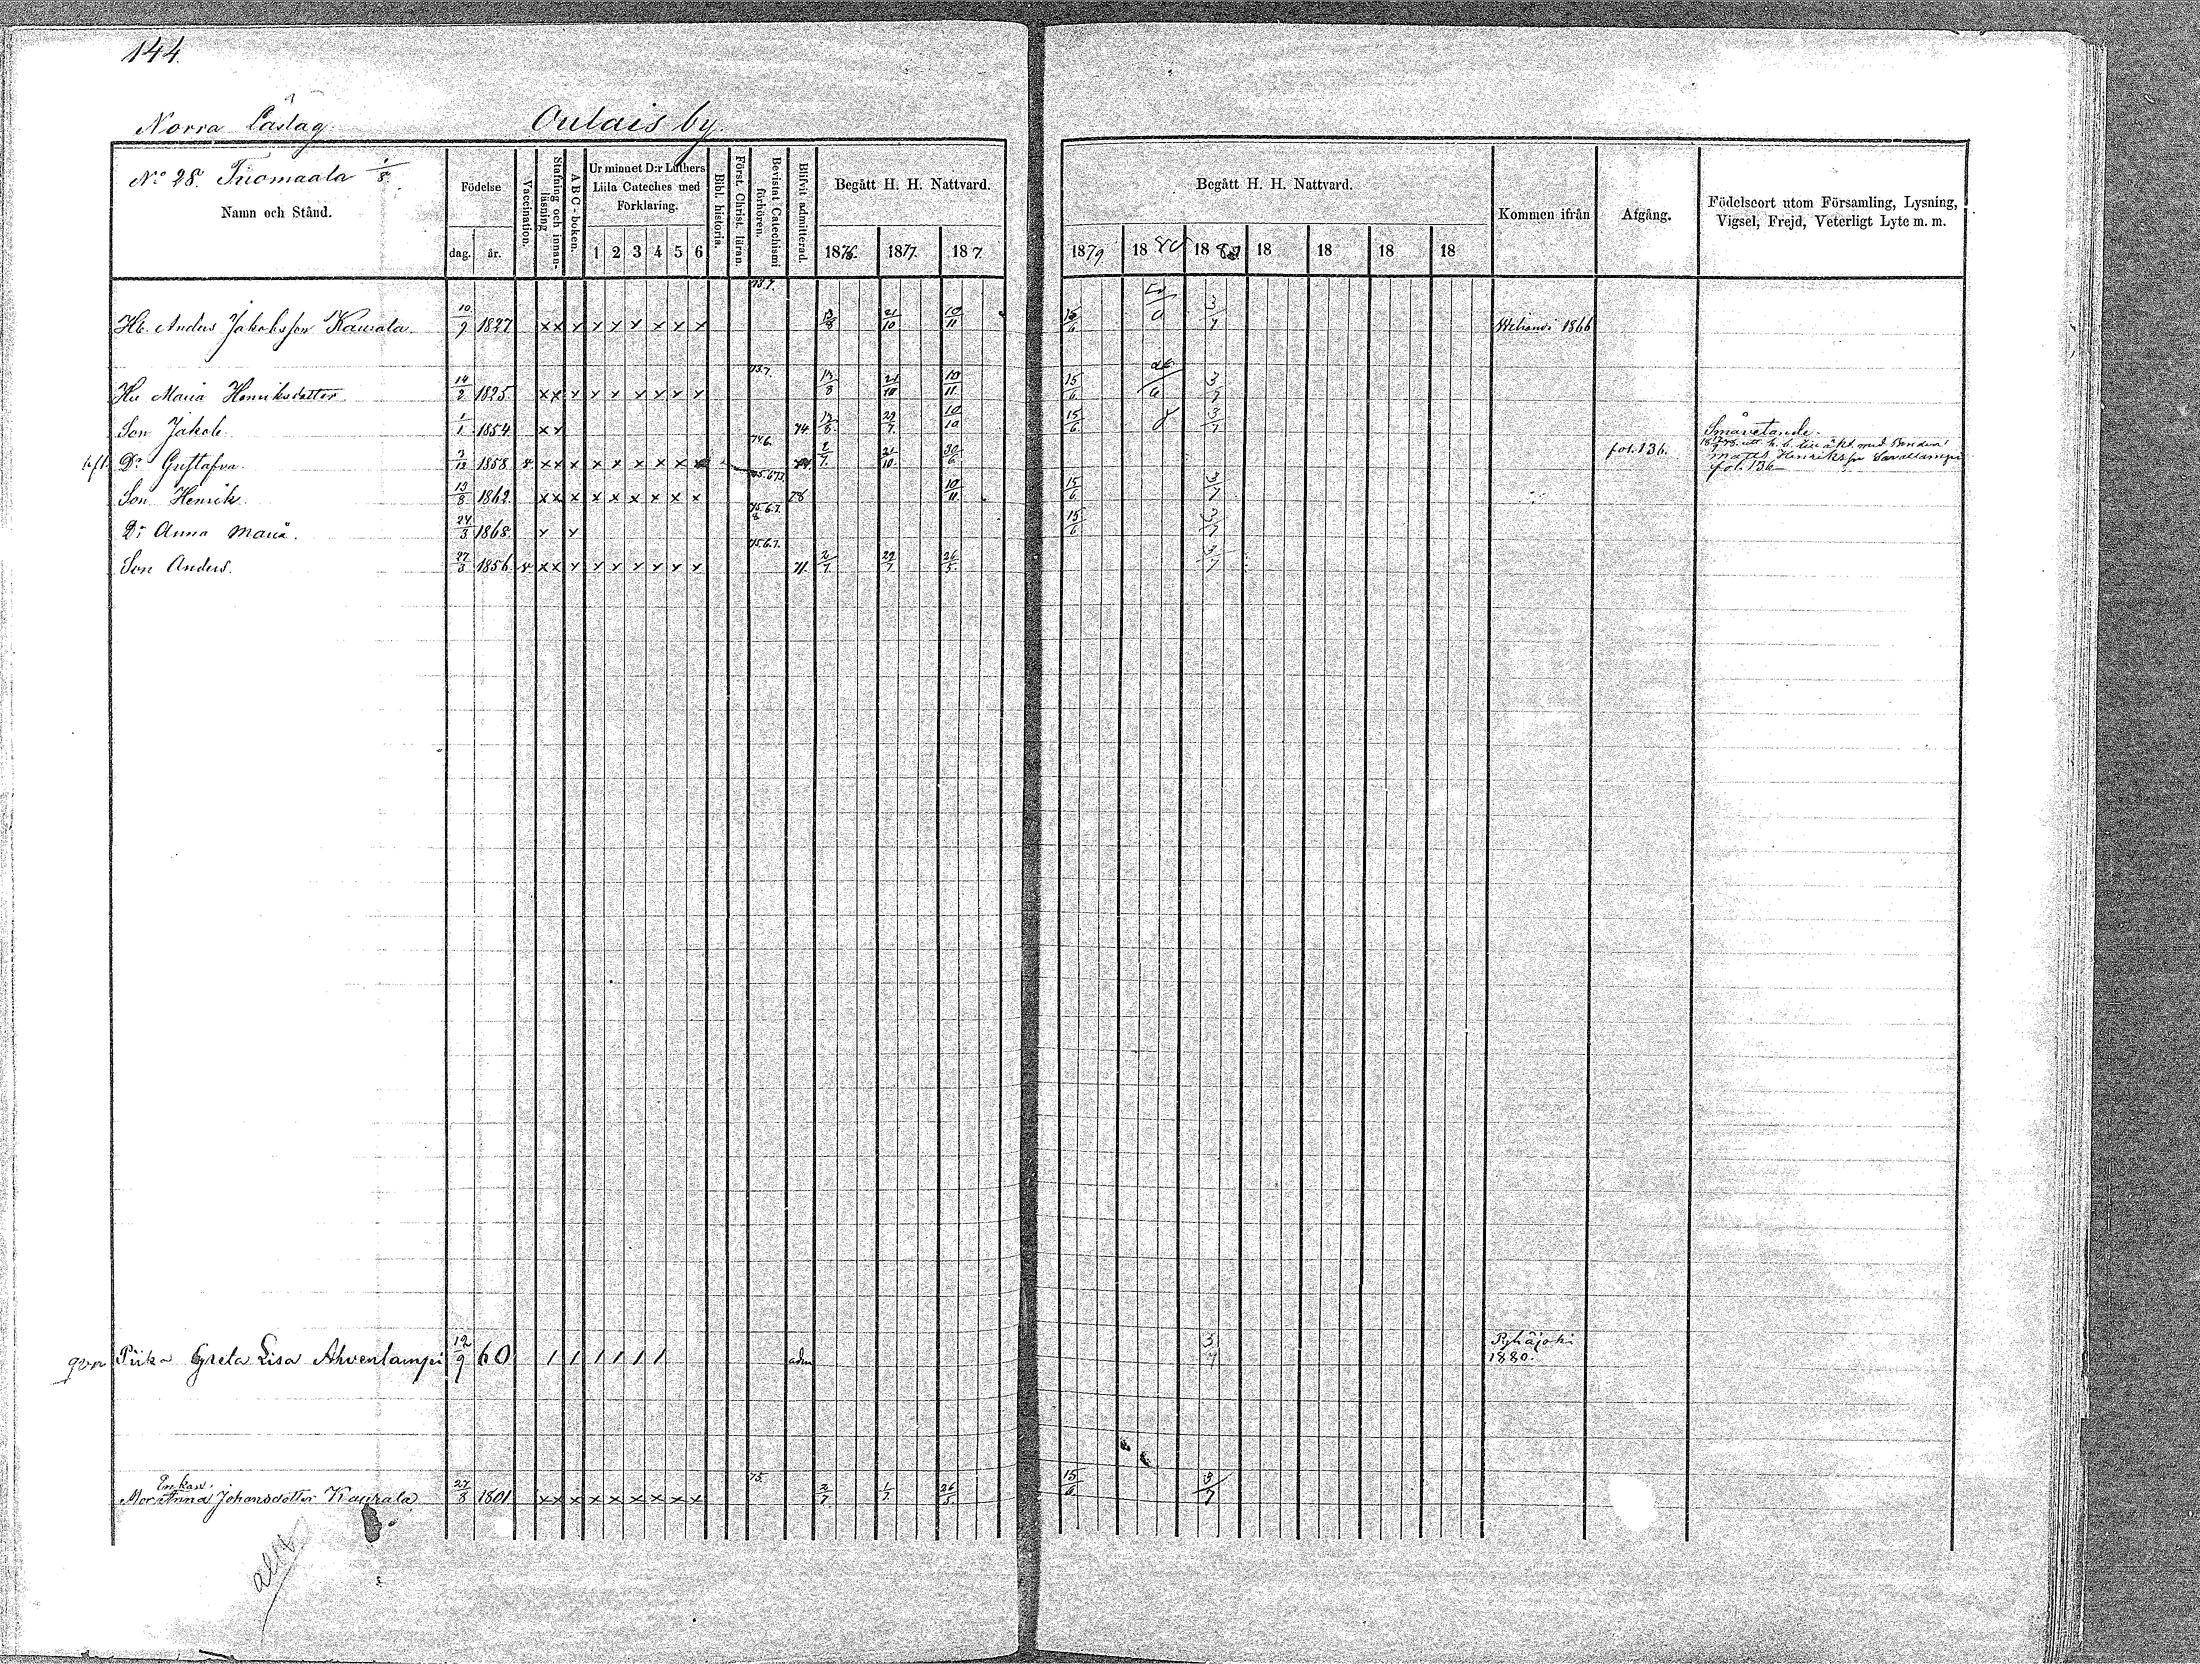 144.
Norra Låslag Oulais by.
No 28. Tuomaala 1/8.
Namn och Stånd.
Födelse
dag. år.
Vaccination.
Stafning och innanläsning
A B C-boken.
Ur minnet D:r Luthers Liila Cateches med Förklaring.
1 2 3 4 5 6
Bibl. historia.
Först. Christ. läran.
Bevistat Catechismi förhören.
Blifvit admitterad.
Begått H. H. Nattvard.
1876. 1877. 187.
Begått H. H. Nattvard.
1879 1880 188 18 18 18 18
Kommen ifrån
Afgång.
Födelseort utom Församling, Lysning, Vigsel, Frejd, Veterligt Lyte m. m.
Hb. Anders Jakobsson Kaurala 10/9 1827 x x x x x x x x x 13/8 21/10 10/11 15/6 3/7 1866
Hu Maria Henriksdotter 14/2 1825 x x x x x x x x x 13/8 21/10 10/11 15/6 3/7
Son Jakob 1/1 1854 x x 74 13/8 29/7 10/10 15/6 3/7 Småvetande.
Dr Gustafva 3/12 1858 x x x x x x x x x 2/7 21/10 30/6 fol. 136. Matts Henriksson Savallampi fol. 136
Son Henrik 13/8 1862 x x x x x x x x x 78 10/11 15/6 3/7
Dr Anna Maria. 24/3 1868 x x 15/6 3/7
Son Anders. 27/8 1856 x x x x x x x x x 71. 2/7 29/7 26/5 3/7
Piika Greta Lisa Ahvenlampi 12/9 60 / / / / / / adm 3/7 Pyhäjoki 1880.
Enkan
Mor Anna Johansdotter Kaurala 27/8 1801 x x x x x x x x x 75. 2/7 1/7 26/5 15/6 3/7